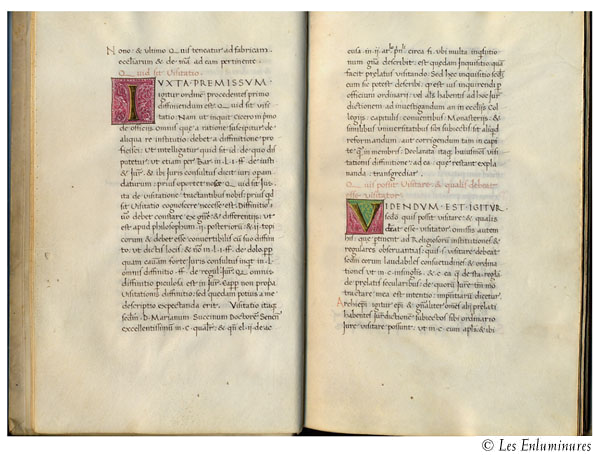 Nono & ultimo Quis teneatur ad fabricam
eccliarum & de iis ad eam pertinent
Quid sit Visitatio
IUXTA PREMISSUM
igitur ordine procedentes primo
diffiniendum est. Quid sit visi
tatio. Nam ut inquit Cicero in primo
de officiis omnis que a ratione suscipitur de
aliqua re institutio debet a diffinitione pro
ficisci. Ut intelligatur quid sit id de quo dis
putetur. ut etiam per Bar. in l. i. ff. de iusti
& Iur. & ibi Iuris consultus dicit iuri opam
daturum prius oportet nosse. Quid sit igitur
da de visitatione tractantibus nobis prius quid
sit Visitatio cognoscere necesse est. Diffinitio
debet constare ex gne & differentijs. ut
est apud philosophum ij posteriorum & ij topi
corum & debet esse convertibilis cum suo diffini
to. ut dicta loci. & in l. i. ff. de dolo. pp
quam causam forte Iuris consultus inqt in l.
omnis diffinitio. ff. de regul. Iur. Q. omnis
diffinitio piculosa est in Iure
Visitationis diffinitio. sed quedam potius a me
descriptio expectanda erit. Visitatio itaq
sedm D. Marianum Succinum Doctore Senen
excellentissimum in c. qualr. & qn el ij de ac
cusa in ij
tum gna describit. est quedam Inquisitio qua
facit prelatus visitando. Sed hec inquisitio sedm
cum sic potest describi. qu est ius inquirendi p
officium ordinarij. vel alis habentis ad hoc Iur
dictionem ad inuestigandum an in ecclijs Col
legijs. capitulis. conuentibus Monasterijs. &
similibus uniuersitatibus sibi subiectis sit aliqd
reformandum aut corrigendum tam in capi
te q in membris. Declarata itaq huiusmodi visi
tationis diffinitione ad ea que restant expla
nanda transgrediar.
Quis possit Visitare. & qualis debeat
esse visitator.
VIDENDUM EST IGITUR
sedo quis possit visitare & qualis
debeat esse visitator. omissis autem
his que ptinent ad Religiosorum institutiones &
regulares obseruantias. quis visitare debeat
sedm eorum laudabiles consuetudines & ordina
tiones ut in c. in singulis. & c. ea q de sta. regla
de prelatis secularibus. de quorum Iure
tractare mea est intentio. impntiarum dicetur.
Archiepi igitur epi & gnaliter omnes alij prelati
habentes Iurdictione subiectos sibi ordinario
Iure visitare possunt. ut in c. cum apla. & ibi
© Les Enluminures